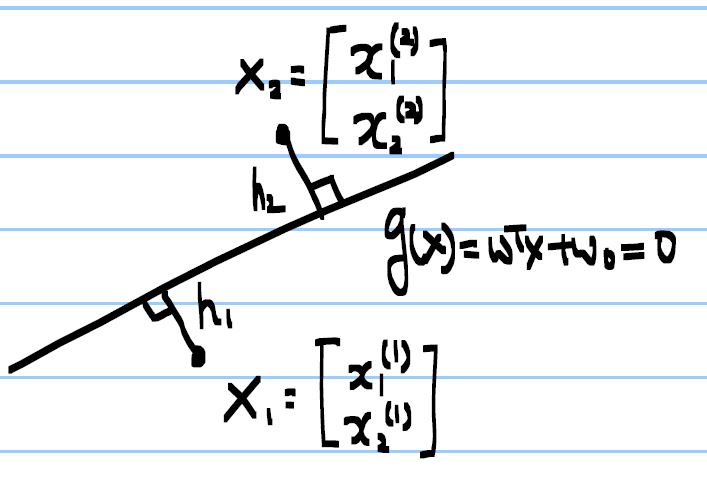 X₂ = [x₁⁽²⁾
x₂⁽²⁾]
h₂
g(x) = wᵀx + w₀ = 0
h₁
X₁ = [x₁⁽¹⁾
x₂⁽¹⁾]